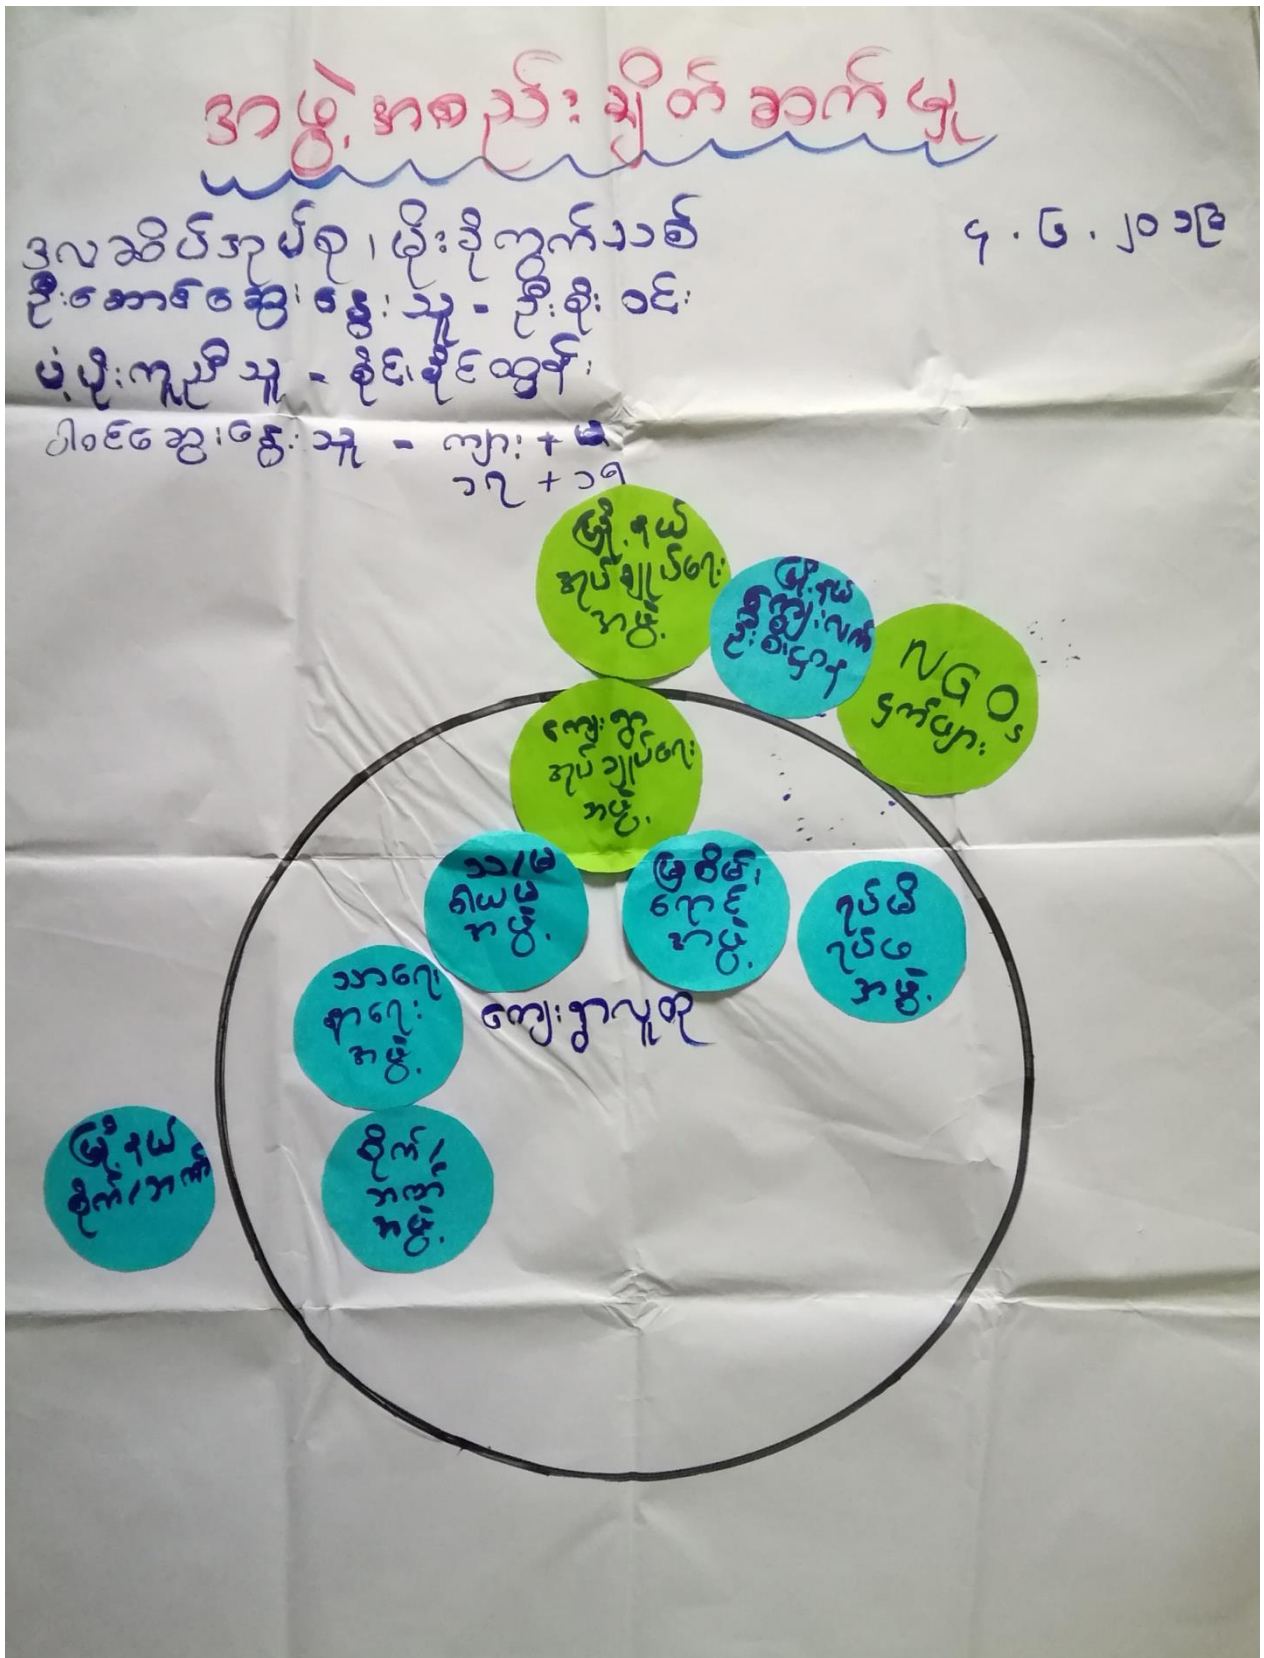 အဖွဲ့အစည်းချိတ်ဆက်မှု
ဒလဆိပ်အုပ်စု၊ မိုးခိုကွက်သစ်
၄.၆.၂၀၁၉
ဦးဆောင်ဆွေးနွေးသူ - ဦးစိုးဝင်း
ပံ့ပိုးကူညီသူ - စိုင်းစိုင်ထွန်း
ပါဝင်ဆွေးနွေးသူ - ကျား + မ
၁၇ + ၁၅
မြို့နယ်
အုပ်ချုပ်ရေး
အဖွဲ့
မြို့နယ်
ကျေးလက်
ဦးစီးဌာန
NGOs
ငှက်ဖျား
ကျေးရွာ
အုပ်ချုပ်ရေး
အဖွဲ့
သ/မ
ဝါယမ
အဖွဲ့
မြစိမ်း
ရောင်
အဖွဲ့
ရပ်မိ
ရပ်ဖ
အဖွဲ့
သာရေး
နာရေး
အဖွဲ့
ကျေးရွာလူထု
မြို့နယ်
စိုက်/ဘဏ်
စိုက်/
ဘဏ်
အဖွဲ့